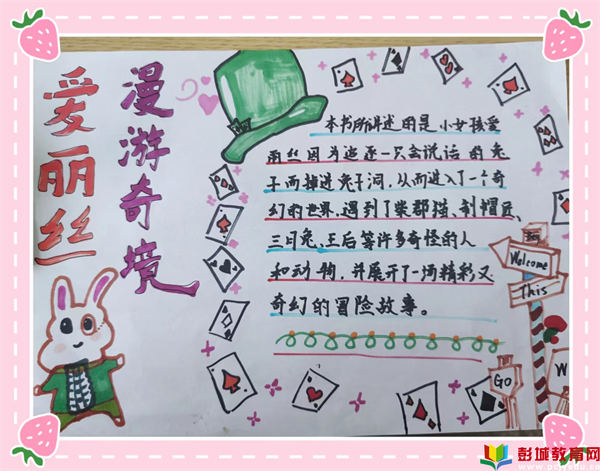 爱丽丝
漫游奇境
本书所讲述的是小女孩爱
丽丝因为追逐一只会说话的兔
子而掉进兔子洞，从而进入了一个奇
幻的世界，遇到了柴郡猫、制帽匠、
三月兔、王后等许多奇怪的人
和动物，并展开了一场精彩又
奇幻的冒险故事。
Welcome
This
GO
W
彭城教育网